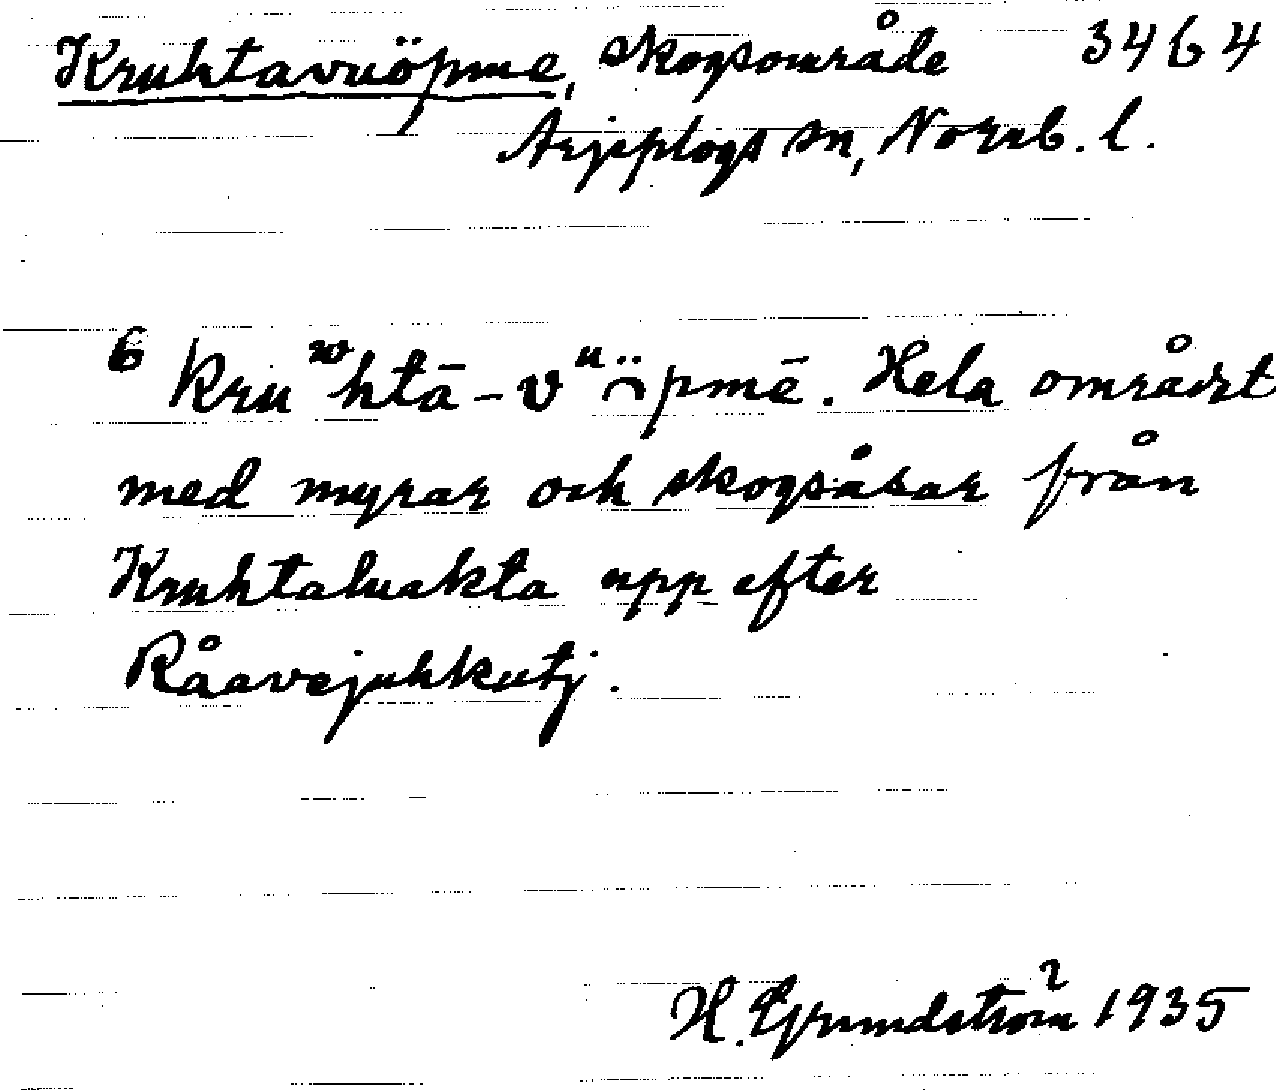 Kruhtavuöpme, skogsområde 3464
Arjeplogs sn, Norrb. l.
6 kruʷhtā-vᵘöpmē. Hela området
med myrar och skogsåsar från
Kruhtaluokta upp efter
Råavejuhkutj.
H. Grundström 1935